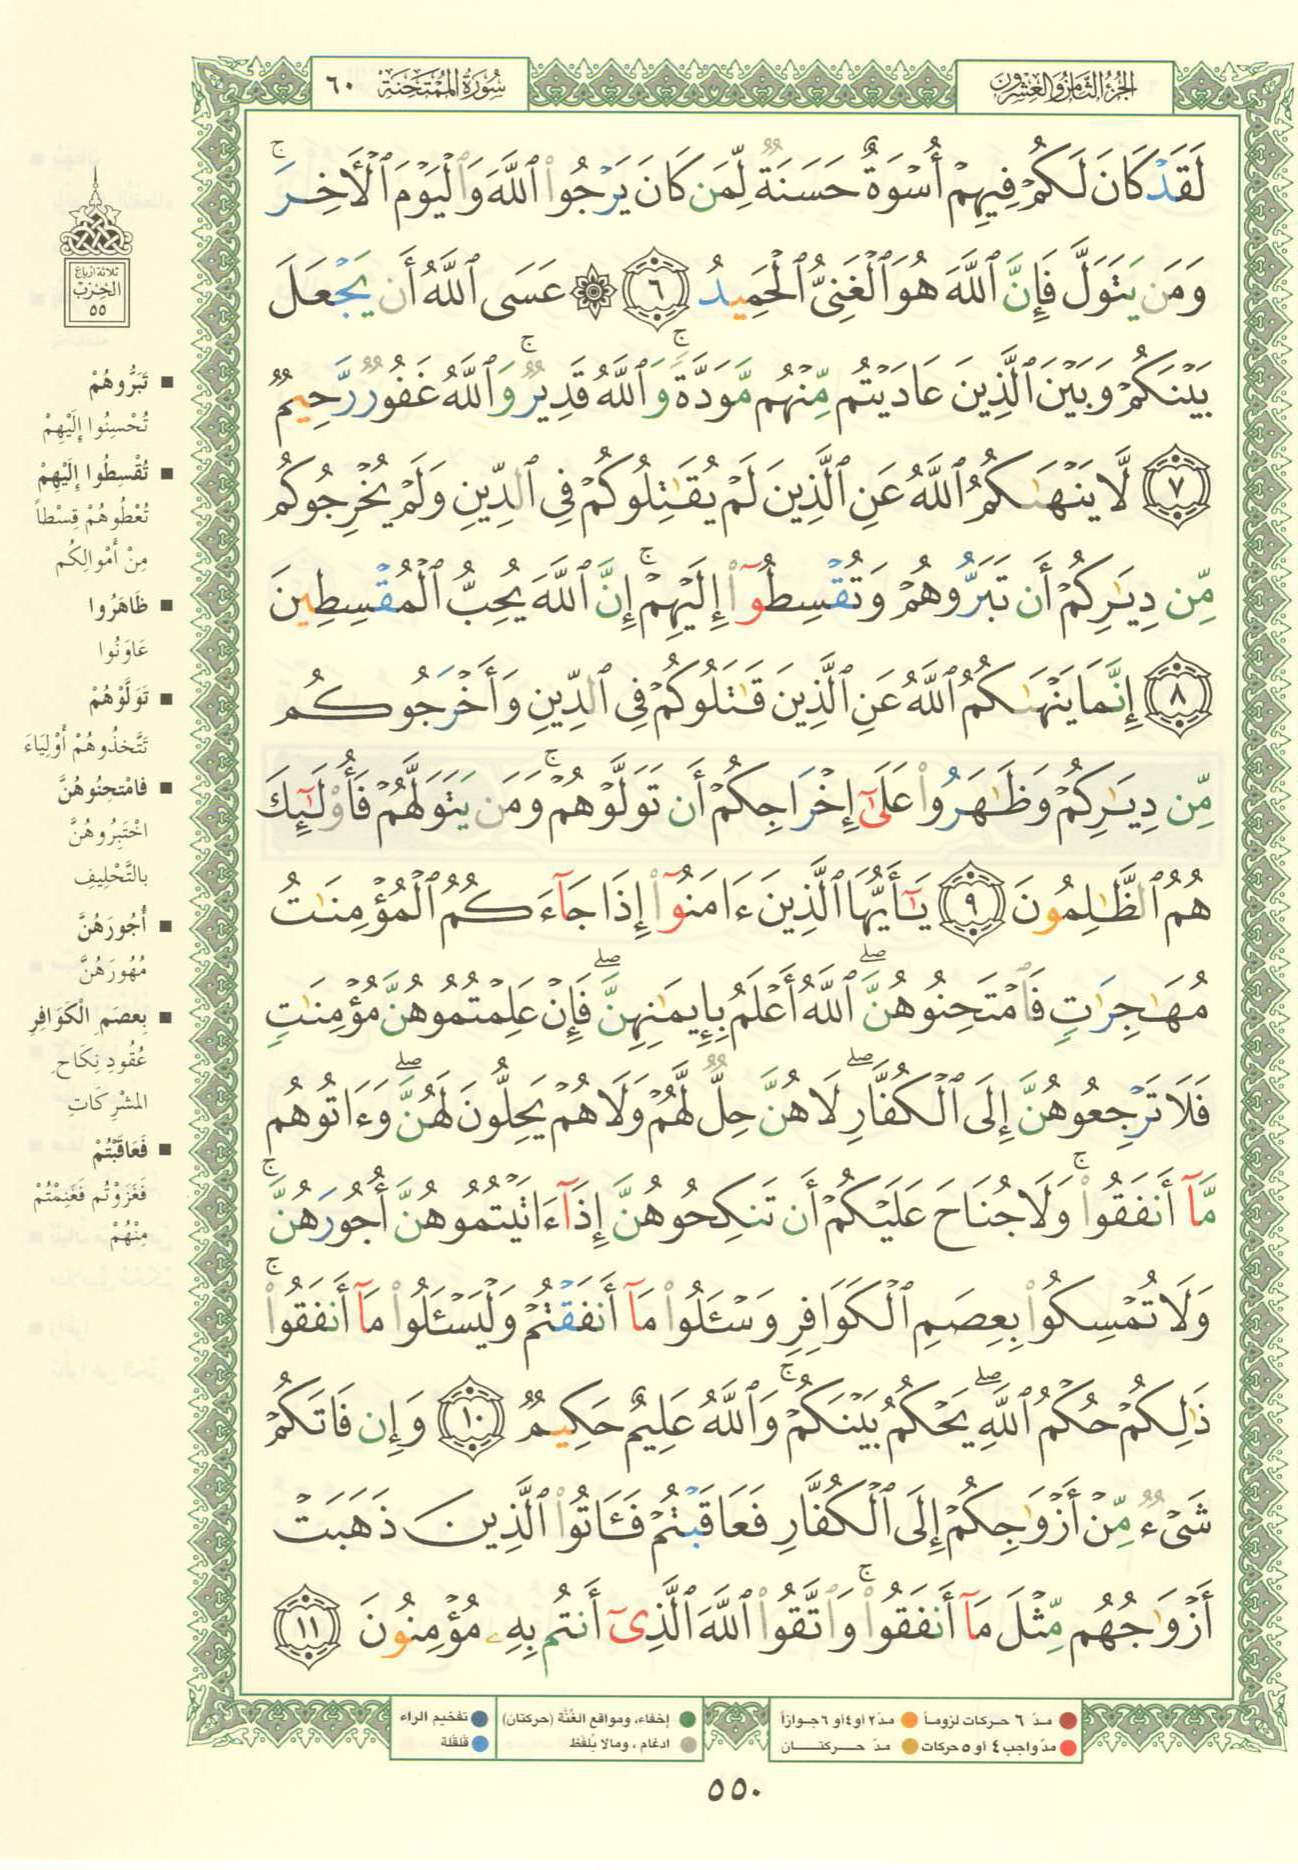 الجزء الثامن والعشرون
سورة الممتحنة ٦٠
لَقَدْ كَانَ لَكُمْ فِيهِمْ أُسْوَةٌ حَسَنَةٌ لِّمَن كَانَ يَرْجُوا۟ ٱللَّهَ وَٱلْيَوْمَ ٱلْأَخِرَ ۚ
وَمَن يَتَوَلَّ فَإِنَّ ٱللَّهَ هُوَ ٱلْغَنِىُّ ٱلْحَمِيدُ ٦ ۞ عَسَى ٱللَّهُ أَن يَجْعَلَ
بَيْنَكُمْ وَبَيْنَ ٱلَّذِينَ عَادَيْتُم مِّنْهُم مَّوَدَّةً ۚ وَٱللَّهُ قَدِيرٌ ۚ وَٱللَّهُ غَفُورٌ رَّحِيمٌ
٧ لَّا يَنْهَىٰكُمُ ٱللَّهُ عَنِ ٱلَّذِينَ لَمْ يُقَـٰتِلُوكُمْ فِى ٱلدِّينِ وَلَمْ يُخْرِجُوكُم
مِّن دِيَـٰرِكُمْ أَن تَبَرُّوهُمْ وَتُقْسِطُوٓا۟ إِلَيْهِمْ ۚ إِنَّ ٱللَّهَ يُحِبُّ ٱلْمُقْسِطِينَ
٨ إِنَّمَا يَنْهَىٰكُمُ ٱللَّهُ عَنِ ٱلَّذِينَ قَـٰتَلُوكُمْ فِى ٱلدِّينِ وَأَخْرَجُوكُم
مِّن دِيَـٰرِكُمْ وَظَـٰهَرُوا۟ عَلَىٰٓ إِخْرَاجِكُمْ أَن تَوَلَّوْهُمْ ۚ وَمَن يَتَوَلَّهُمْ فَأُو۟لَـٰٓئِكَ
هُمُ ٱلظَّـٰلِمُونَ ٩ يَـٰٓأَيُّهَا ٱلَّذِينَ ءَامَنُوٓا۟ إِذَا جَآءَكُمُ ٱلْمُؤْمِنَـٰتُ
مُهَـٰجِرَٰتٍ فَٱمْتَحِنُوهُنَّ ۖ ٱللَّهُ أَعْلَمُ بِإِيمَـٰنِهِنَّ ۖ فَإِنْ عَلِمْتُمُوهُنَّ مُؤْمِنَـٰتٍ
فَلَا تَرْجِعُوهُنَّ إِلَى ٱلْكُفَّارِ ۖ لَا هُنَّ حِلٌّ لَّهُمْ وَلَا هُمْ يَحِلُّونَ لَهُنَّ ۖ وَءَاتُوهُم
مَّآ أَنفَقُوا۟ ۚ وَلَا جُنَاحَ عَلَيْكُمْ أَن تَنكِحُوهُنَّ إِذَآ ءَاتَيْتُمُوهُنَّ أُجُورَهُنَّ ۚ
وَلَا تُمْسِكُوا۟ بِعِصَمِ ٱلْكَوَافِرِ وَسْـَٔلُوا۟ مَآ أَنفَقْتُمْ وَلْيَسْـَٔلُوا۟ مَآ أَنفَقُوا۟ ۚ
ذَٰلِكُمْ حُكْمُ ٱللَّهِ ۖ يَحْكُمُ بَيْنَكُمْ ۚ وَٱللَّهُ عَلِيمٌ حَكِيمٌ ١٠ وَإِن فَاتَكُمْ
شَىْءٌ مِّنْ أَزْوَٰجِكُمْ إِلَى ٱلْكُفَّارِ فَعَاقَبْتُمْ فَـَٔاتُوا۟ ٱلَّذِينَ ذَهَبَتْ
أَزْوَٰجُهُم مِّثْلَ مَآ أَنفَقُوا۟ ۚ وَٱتَّقُوا۟ ٱللَّهَ ٱلَّذِىٓ أَنتُم بِهِۦ مُؤْمِنُونَ ١١
ثلاثة أرباع
الحزب
٥٥
■ تَبَرُّوهُمْ
تُحْسِنُوا إِلَيْهِمْ
■ تُقْسِطُوا إِلَيْهِمْ
تُعْطُوهُمْ قِسْطاً
مِنْ أَمْوالِكُم
■ ظَاهَرُوا
عَاوَنُوا
■ تَوَلَّوْهُمْ
تَتَّخِذُوهُمْ أَوْلِيَاءَ
■ فامْتحِنُوهُنَّ
اخْتَبِرُوهُنَّ
بالتَّحْلِيفِ
■ أُجُورَهُنَّ
مُهُورَهُنَّ
■ بِعصَمِ الْكَوَافِرِ
عُقُودِ نِكَاحِ
المشْرِكَاتِ
■ فَعَاقَبْتُمْ
فَغَزَوْتُم فَغَنِمْتُمْ
مِنْهُمْ
مدّ ٦ حركات لزوماً مدّ ٢ أو ٤ أو ٦ جوازاً
مدّ واجب ٤ أو ٥ حركات مدّ حركتان
إخفاء، ومواقع الغُنَّة (حركتان)
ادغام، وما لا يُلفظ
تفخيم الراء
قلقلة
٥٥٠